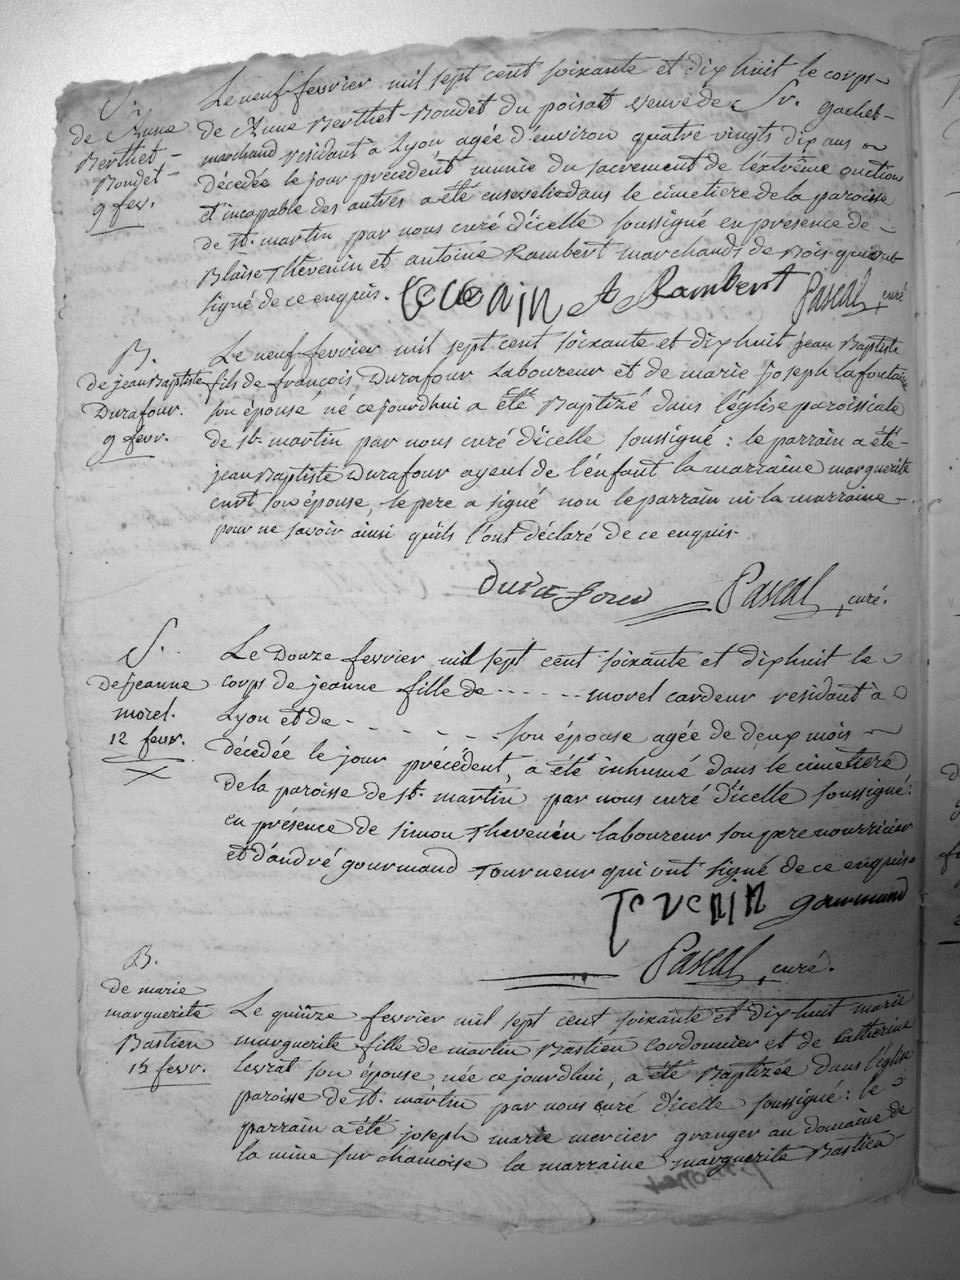 S.
de Anne
Berthet-
Boudet-
9 fev.
Le neuf fevrier mil sept cent soixante et dix huit le corps
de Anne Berthet-Boudet du poisat veuve de Sr. gachet-
marchand residant à Lyon agée d'environ quatre vingts dix ans
décedée le jour précédent munie du sacrement de l'extrême onction
et incapable des autres a été ensevelie dans le cimetiere de la paroisse
de St. martin par nous curé d'icelle soussigné en présence de
Blaise Thévenin et antoine Rambert marchands de
signé de ce enquis. A Rambert Pascal, curé
B.
de jean Baptiste
Durafour.
9 fevr.
Le neuf fevrier mil sept cent soixante et dix huit jean Baptiste
fils de françois Durafour Laboureur et de marie joseph lafontaine
son épouse né ce jourdhui a été Baptizé dans l'église paroissiale
de St. martin par nous curé d'icelle soussigné : le parrain a été
jean Baptiste Durafour ayeul de l'enfant la marraine marguerite
son épouse, le pere a signé non le parrain ni la marraine
pour ne savoir ainsi qu'ils l'ont déclaré de ce enquis.
Pascal, curé.
S.
De jeanne
morel.
12 fevr.
Le Douze fevrier mil sept cent soixante et dixhuit le
corps de jeanne fille de - - - - - - morel cardeur residant à
Lyon et de - - - - - - son épouse agée de deux mois
décedée le jour précédent, a été inhumé dans le cimetiere
de la paroisse de St. martin par nous curé d'icelle soussigné :
en présence de simon Thevenin laboureur son pere nourricier
et d'andré gourmand Tourneur qui ont signé de ce enquis.
Tevenin gourmand
Pascal, curé.
B.
de marie
marguerite
Bastien
15 fevr.
Le quinze fevrier mil sept cent soixante et dix huit marie
marguerite fille de martin Bastien Cordonnier et de Catherine
levrat son épouse née ce jourdhui, a été Baptizée dans l'église
paroisse de St. martin par nous curé d'icelle soussigné : le
parrain a été joseph marie mercier granger au domaine de
la mine sur chamoise la marraine marguerite Bastien